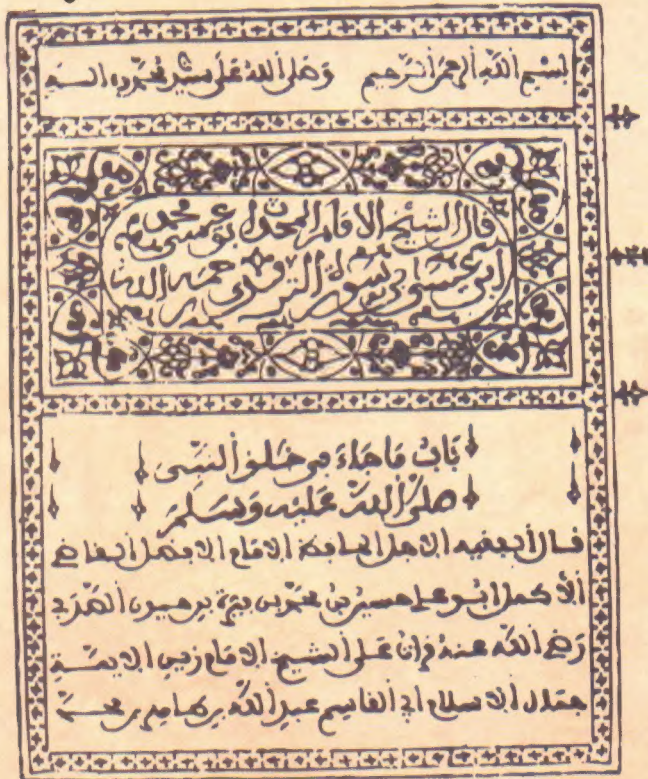 بسم الله الرحمن الرحيم وصلى الله على سيدنا محمد وآله
قال الشيخ الامام المحدث ابو عيسى محمد
ابن عيسى بن سورة الترمذي رحمه الله
بَابُ مَا جَاءَ في خَلْقِ النَّبِيِّ
صَلَّى اللهُ عَلَيْهِ وَسَلَّمَ
قال الفقيه الاجل الحافظ الامام الافضل القاضي
الأكمل ابو علي حسين بن محمد بن فيرة بن حيون الصدفي
رضي الله عنه قرأت على الشيخ الامام زين الايمة
جمال الاسلام أبي القاسم عبد الله بن طاهر بن محمد